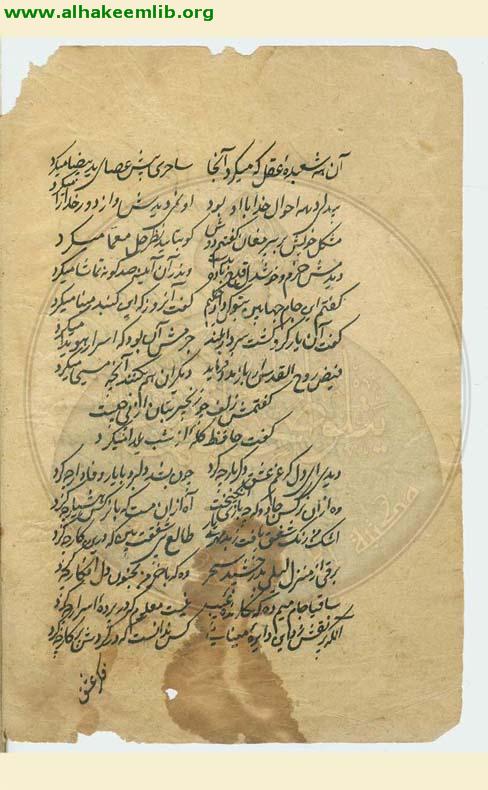 www.alhakeemlib.org
آن همه شعبدهٔ عقل که میکرد آنجا ساحری پیش عصای ید بیضا میکرد
بیدلی در همه احوال خدا با او بود او نمیدیدش و از دور خدا را میکرد
مشکل خویش بر پیر مغان گفتم دوش کو بتایید نظر حل معما میکرد
دیدمش خرم و خوشدل قدح باده بدست وندر آن آینه صد گونه تماشا میکرد
گفتم این جام جهان بین بتو کی داد حکیم گفت آنروز که این گنبد مینا میکرد
گفت آن یار کزو گشت سر دار بلند جرمش آن بود که اسرار هویدا میکرد
فیض روح القدس ار باز مدد فرماید دیگران هم بکنند آنچه مسیحا میکرد
گفتمش زلف چو زنجیر بتان از پی چیست
گفت حافظ گله از شب یلدا میکرد
دیدی ای دل که غم عشق دگر بار چه کرد چون بشد دلبر و با یار وفادار چه کرد
وه از آن نرگس جادو که چه بازی انگیخت آه از آن مست که با مردم هشیار چه کرد
اشک من رنگ شفق یافت ز بی مهری یار طالع بی شفقت بین که درین کار چه کرد
برقی از منزل لیلی بدرخشید سحر وه که با خرمن مجنون دل افکار چه کرد
ساقیا جام میم ده که نگارنده غیب نیست معلوم که در پرده اسرار چه کرد
آنکه پر نقش زد این دایره مینایی کس ندانست که در گردش پرگار چه کرد
فکر عشق